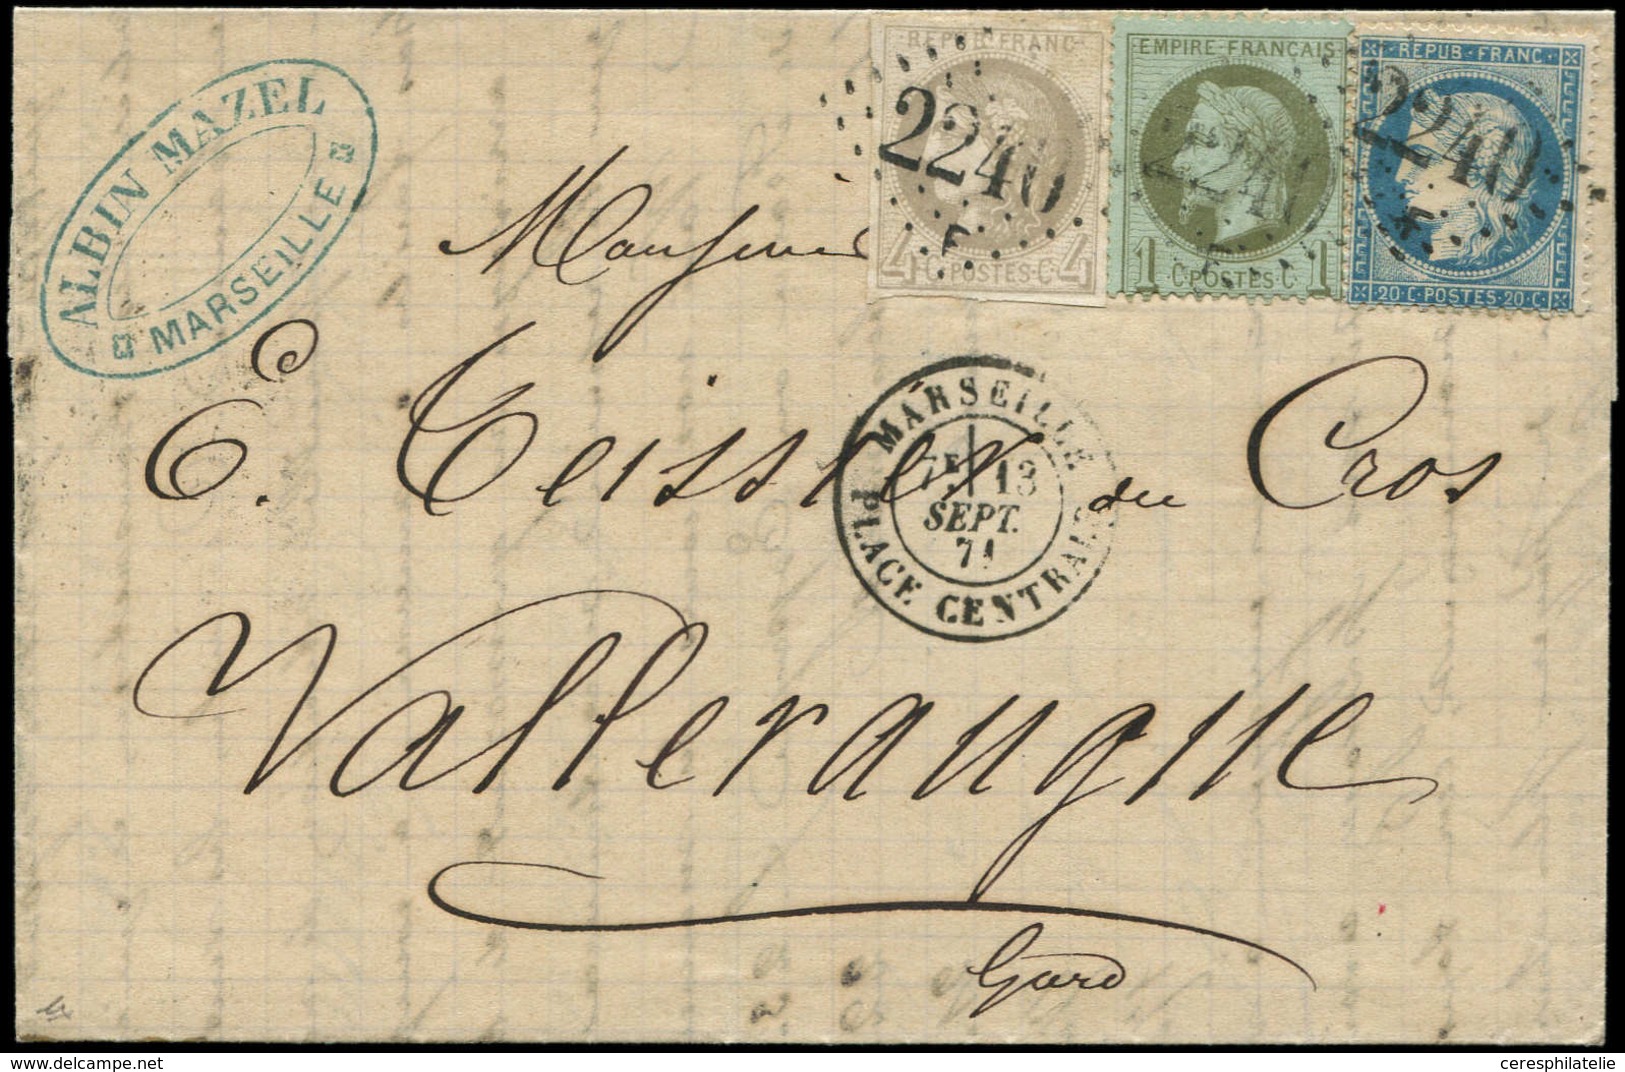 ALBIN MAZEL
MARSEILLE
REPUB·FRANC·
4 C·POSTES·C· 4
2240
EMPIRE·FRANÇAIS
1 C·POSTES·C· 1
2240
REPUB·FRANC·
20·C·POSTES·20·C·
2240
Monsieur
E. Teissier du Cros
MARSEILLE
13
SEPT.
71
PLACE CENTRALE
Valleraugue
Gard
ceresphilatelie